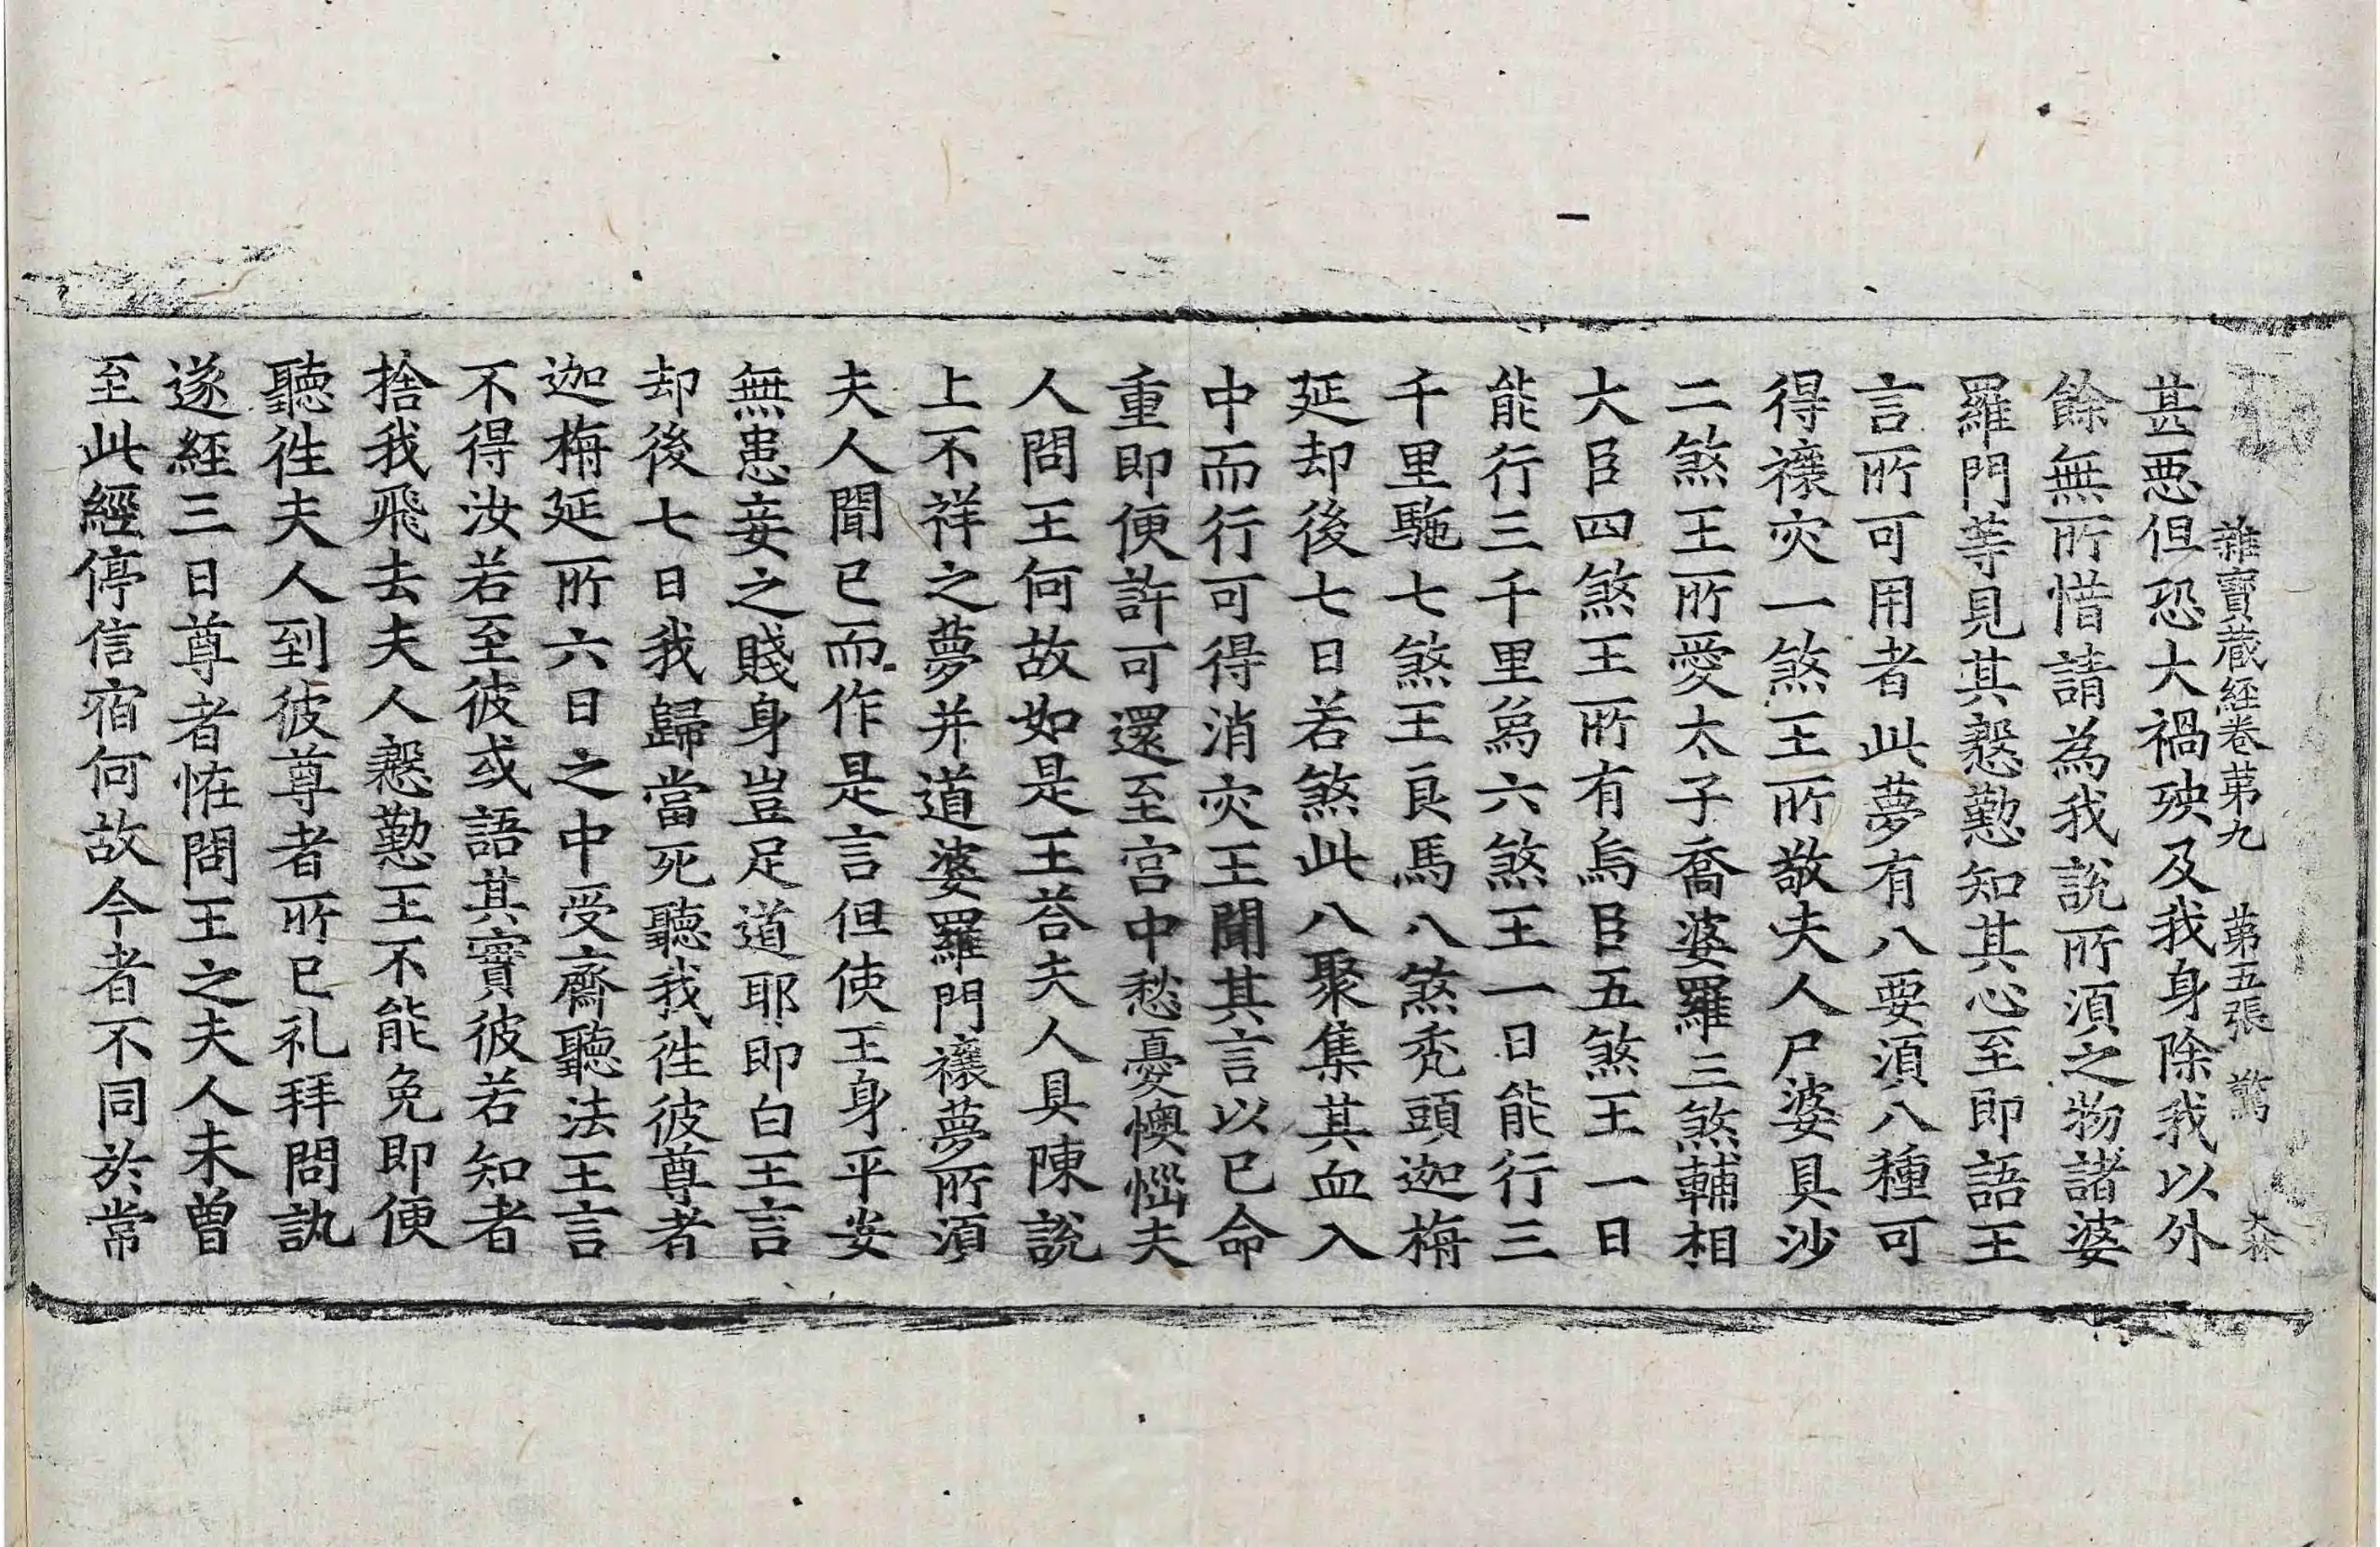 雜寶蔵経卷苐九 苐五張 驚 大林
甚惡但恐大禍殃及我身除我以外
餘無所惜請為我說所湏之物諸婆
羅門等見其慇懃知其心至即語王
言所可用者此夢有八要湏八種可
得禳灾一煞王所敬夫人尸婆具沙
二煞王所愛太子喬婆羅三煞輔相
大臣四煞王所有烏臣五煞王一日
能行三千里爲六煞王一日能行三
千里駞七煞王良馬八煞秃頭迦栴
延却後七日若煞此八聚集其血入
中而行可得消灾王聞其言以已命
重即便許可還至宫中愁憂懊惱夫
人問王何故如是王荅夫人具陳說
上不祥之夢并道婆羅門禳夢所湏
夫人聞已而作是言但使王身平安
無患妾之賤身豈足道耶即白王言
却後七日我歸當死聽我徃彼尊者
迦栴延所六日之中受齋聽法王言
不得汝若至彼或語其實彼若知者
捨我飛去夫人慇懃王不能免即便
聽徃夫人到彼尊者所已礼拜問訊
遂經三日尊者恠問王之夫人未曾
至此經停信宿何故今者不同於常